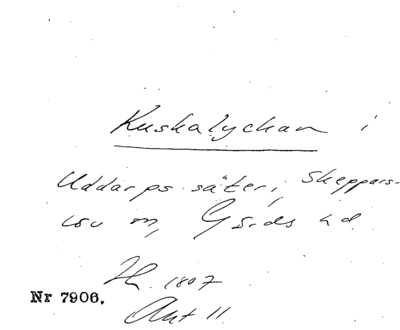 Kuskalyckan i
Uddarps säteri, Skeppars-
löv sn, Gärds hd
Hs. 1807
Nr 7906.
Akt 11